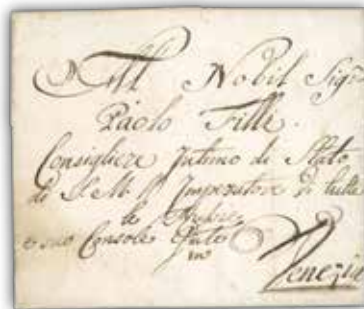 All Nobil Sigr
Paolo Filli.
Consigliere Intimo di Stato
di S. M. l'Imperatore di tutte
le
e suo Console
in
Venezia